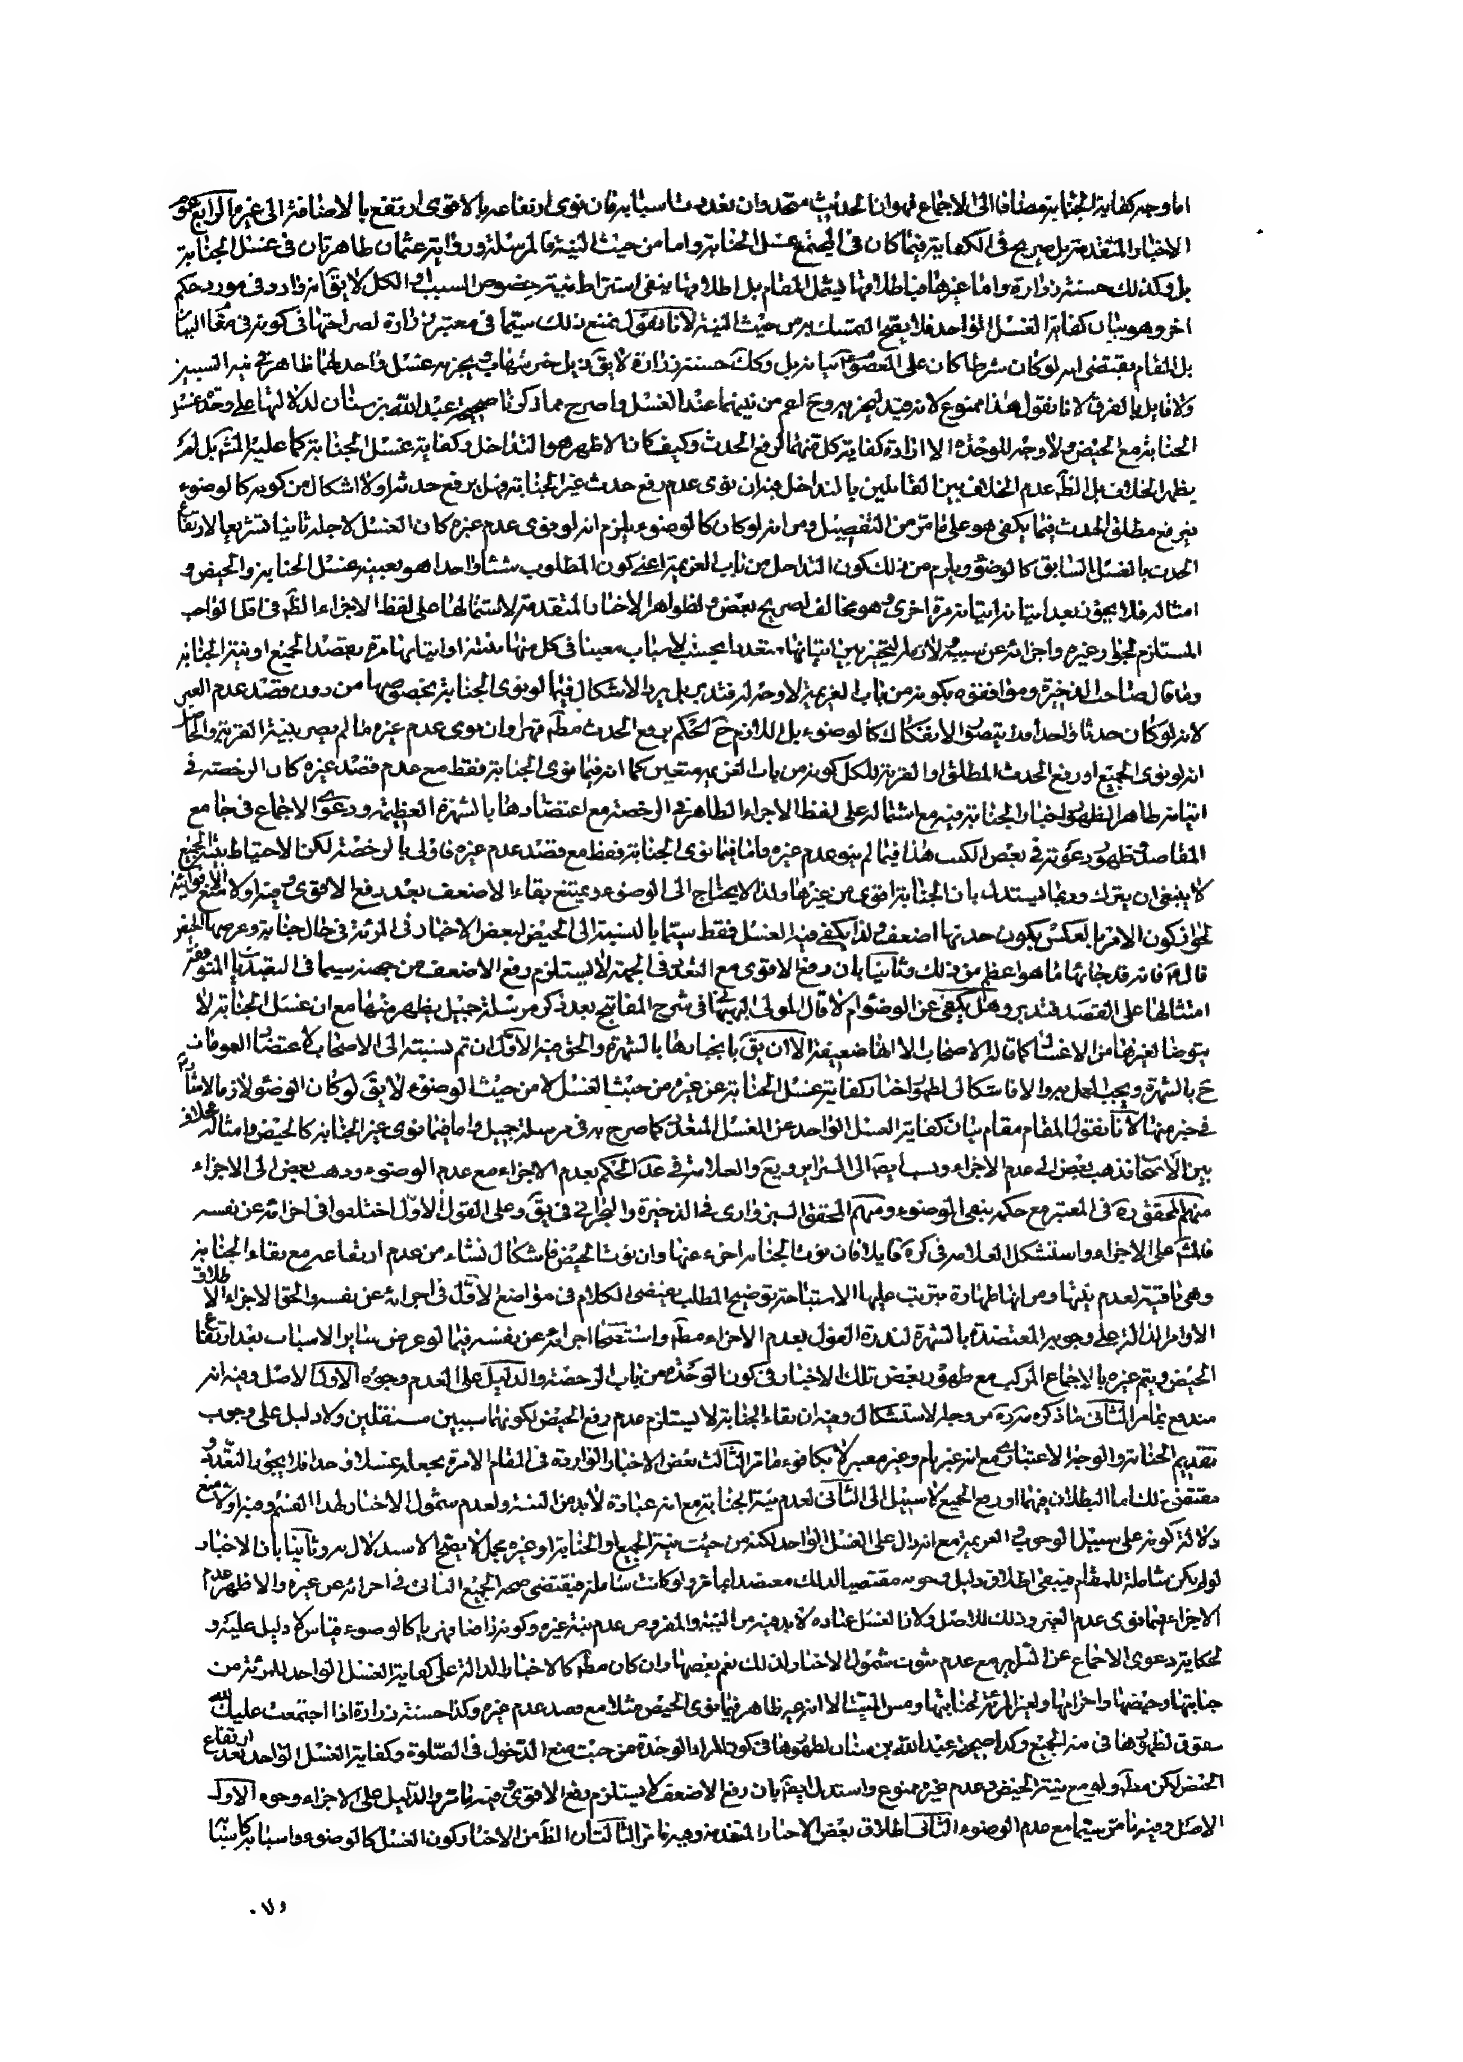 اما وجه كفاية الجنابة مضافا الى الاجماع فهو ان الحدث متحد وان تعددت اسبابه فان نوى ارتفاعه بالاقوى ارتفع بالاضافة الى غيره الرابع عموم
الاخبار المتقدمة بل صريح في الكفاية فيما كان في الجميع غسل الجنابة واما من حيث النية فالمرسلة ورواية عثمان ظاهرتان في غسل الجنابة
بل وكذلك حسنة زرارة واما غيرها فباطلاقها يشمل المقام بل اطلاقها ينفى اشتراط نية خصوص السبب او الكل لا يق انه وارد في مورد حكم
اخر وهو بيان كفاية الغسل الواحد فلا يصح التمسك به من حيث النية لانا نقول نمنع ذلك سيما في معتبرة زرارة لصراحتها في كونه في مقام البيان
بل المقام يقتضى انه لو كان شرطا كان على المعصوم بيانه بل وكك حسنة زرارة لا يق ذيل خبر شهاب يجزيه غسل واحد لهما ظاهر في نية السببين
ولا قايل بالفرق لانا نقول هذا ممنوع لانه قيد ليجزيه وهو اعم من نيتهما عند الغسل واصرح مما ذكرنا صحيحة عبد الله بن سنان لدلالتها على وحدة غسل
الجنابة مع الحيض ولا وجه للوحدة الا ارادة كفاية كل منهما لرفع الحدث وكيف كان الاظهر هو التداخل وكفاية غسل الجنابة كما عليه المش بل لم
يظهر الخلاف بل الظ عدم الخلاف بين القائلين بالتداخل فيه ان نوى عدم رفع حدث غير الجنابة وهل يرفع حدثه اولا اشكال من كونه كالوضوء
فيرفع مطلق الحدث فيما يكفى هو على ما مر من التفصيل ومن انه لو كان كالوضوء يلزم انه لو نوى عدم غيره كان الغسل لاجله ثانيا تشريعا لارتفاع
الحدث بالغسل السابق كالوضوء ويلزم من ذلك كون التداخل من باب العزيمة اعنى كون المطلوب شيئا واحدا هو بعينه غسل الجنابة والحيض و
امثاله فلا يجوز بعد اتيانه اتيانه مرة اخرى وهو مخالف لصريح بعض ولظواهر الاخبار المتقدمة لاشتمالها على لفظ الاجزاء الظ في اقل الواجب
المستلزم لجواز غيره واجزائه عن سببه لانه صار للتخيير بين اتيانها متعددا بحسب الاسباب معينا في كل منها بنيته او اتيانها مرة بقصد الجميع او بنية الجنابة
وما قال صاحب الذخيرة وموافقوه بكونه من باب العزيمة لا وجه له فتدبر بل يرد الاشكال فيما لو نوى الجنابة بخصوصها من دون قصد عدم الغير
لانه لو كان حدثا واحدا فلا يتصور الانفكاك كالوضوء بل اللازم ح الحكم برفع الحدث مط قهرا وان نوى عدم غيره ما لم يصر بنية القربة والحاصل
انه لو نوى الجميع او رفع الحدث المطلق او القربة للكل كونه من باب العزيمة متعين كما انه فيما نوى الجنابة فقط مع عدم قصد غيره كان الرخصة في
اتيانه ظاهرا لظهور اخبار الجنابة فيه مع اشتماله على لفظ الاجزاء الظاهرة في الرخصة مع اعتضادها بالشهرة العظيمة ودعوى الاجماع في جامع
المقاصد وظهور دعوته في بعض الكتب هذا فيما لم ينو عدم غيره واما فيما نوى الجنابة فقط مع قصد عدم غيره فاولى بالرخصة لكن الاحتياط بنية الجميع
لا ينبغى ان يترك وربما يستدل بان الجنابة اقوى من غيرها ولذا لا يحتاج الى الوضوء ويمتنع بقاء الاضعف بعد رفع الاقوى وفيه اولا منع الاقوائية
لجواز كون الامر بالعكس بكون حدثها اضعف ولذا يكفى فيه الغسل فقط سيما بالنسبة الى الحيض لبعض الاخبار في المرئة في حال جنابة وعرضها الحيض
قال ع قد جائها ما هو اعظم من ذلك وثانيا بان رفع الاقوى مع التعدد في الجهة لا يستلزم رفع الاضعف من جهته سيما في التعبديات المتوقفة
امتثالها على القصد فتدبر وهل يكفى عن الوضوء ام لا قال المولى البهبهانى في شرح المفاتيح بعد ذكر مرسلة جميل يظهر منها مع ان غسل الجنابة لا
يتوضا لغيرها من الاغسال كما قاله الاصحاب الا انها ضعيفة الا ان يق بانجبارها بالشهرة والحق فيه الاول ان تم نسبته الى الاصحاب لاعتضاد العمومات
ح بالشهرة ويجب العمل به والا فاشكال اظهر اخبار كفاية غسل الجنابة عن غيره من حيث الغسل لا من حيث الوضوء لا يق لو كان الوضوء لازما لاشار
في خبر منها لانا نقول المقام مقام بيان كفاية الغسل الواحد عن الغسل المتعدد كما صرح به في مرسلة جميل واما فيما نوى غير الجنابة كالحيض وامثاله فخلاف
بين الاصحاب فذهب بعض الى عدم الاجزاء ونسب ايض الى السرائر ويع والعلامة في عد الحكم بعدم الاجزاء مع عدم الوضوء وذهب بعض الى الاجزاء
منهم المحقق ره في المعتبر مع حكمه بنفى الوضوء ومنهم المحقق السبزوارى في الذخيرة والبحرانى في يق وعلى القول الاول اختلفوا في اجزائه عن نفسه
فالمش على الاجزاء واستشكل العلامة في كره قايلا فان نوت الجنابة اجزء عنها وان نوت الحيض فاشكال نشاء من عدم ارتفاعه مع بقاء الجنابة
وهى باقية لعدم نيتها ومن انها طهارة يترتب عليها الاستباحة وتوضيح المطلب يقتضى الكلام في مواضع الاول في اجزائه عن نفسه والحق الاجزاء لاطلاق
الاوامر الدالة على وجوبه المعتضدة بالشهرة لندرة القول بعدم الاجزاء مط واستصحاب اجزائه عن نفسه فيما لو عرض ساير الاسباب بعد ارتفاع
الحيض ويتم غيره بالاجماع المركب مع ظهور بعض تلك الاخبار في كون الوحدة من باب الرخصة والدليل على العدم وجوه الاول الاصل وفيه انه
مندفع بما مر الثانى ما ذكره في كره من وجه الاستشكال وفيه ان بقاء الجنابة لا يستلزم عدم رفع الحيض لكونهما سببين مستقلين ولا دليل على وجوب
تقديم الجنابة والوجه الاعتبارى مع انه غير تام وغير معتبر لا يكافوء ما مر الثالث بعض الاخبار الواردة في المقام الامرة بجعله غسلا واحدا فلا يجوز التعدد و
مقتضى ذلك اما البطلان فيهما او رفع الجميع لا سبيل الى الثانى لعدم نية الجنابة مع انه عبادة لا بد من النية ولعدم شمول الاخبار لهذا القسم وفيه اولا منع
دلالة كونه على سبيل الوجوب والعزيمة مع انه دال على الغسل الواحد لكنه من حيث نية الجميع او الجنابة او غيره مجمل لا يصح الاستدلال به وثانيا بان الاخبار
لو لم يكن شاملة للمقام فيبقى اطلاق دليل وجوبه مقتضيا لذلك معتضدا بما مر ولو كانت شاملة فيقتضى صحة الجميع الثانى في اجزائه عن غيره والاظهر عدم
الاجزاء فيما نوى عدم الغير وذلك للاصل ولان الغسل عبادة لا بد فيه من النية والمفروض عدم نية غيره وكونه رافعا قهريا كالوضوء قياس لا دليل عليه و
لحكاية دعوى الاجماع عن السرائر مع عدم ثبوت شمول الاخبار لذلك نعم بعضها وان كان مط كالاخبار الدالة على كفاية الغسل الواحد للمرئة من
جنابتها وحيضها واحرامها ولغير المرئة لجنابتها ومس الميت الا انه غير ظاهر فيما نوى الحيض مثلا مع قصد عدم غيره وكذا حسنة زرارة اذا اجتمعت عليك لله
حقوق لظهورها في نية الجميع وكذا صحيحة عبد الله بن سنان لظهورها في كون المراد الوحدة من حيث منع الدخول في الصلوة وكفاية الغسل الواحد بعد ارتفاع
الحيض لكن مط ولو مع نية الحيض وعدم غيره ممنوع واستدل ايض بان رفع الاضعف لا يستلزم رفع الاقوى وفيه ما مر والدليل على الاجزاء وجوه الاول
الاصل وفيه ما مر سيما مع عدم الوضوء الثانى اطلاق بعض الاخبار المتقدمة وفيه ما مر الثالث ان الظ من الاخبار كون الغسل كالوضوء واسبابه كاسبابه